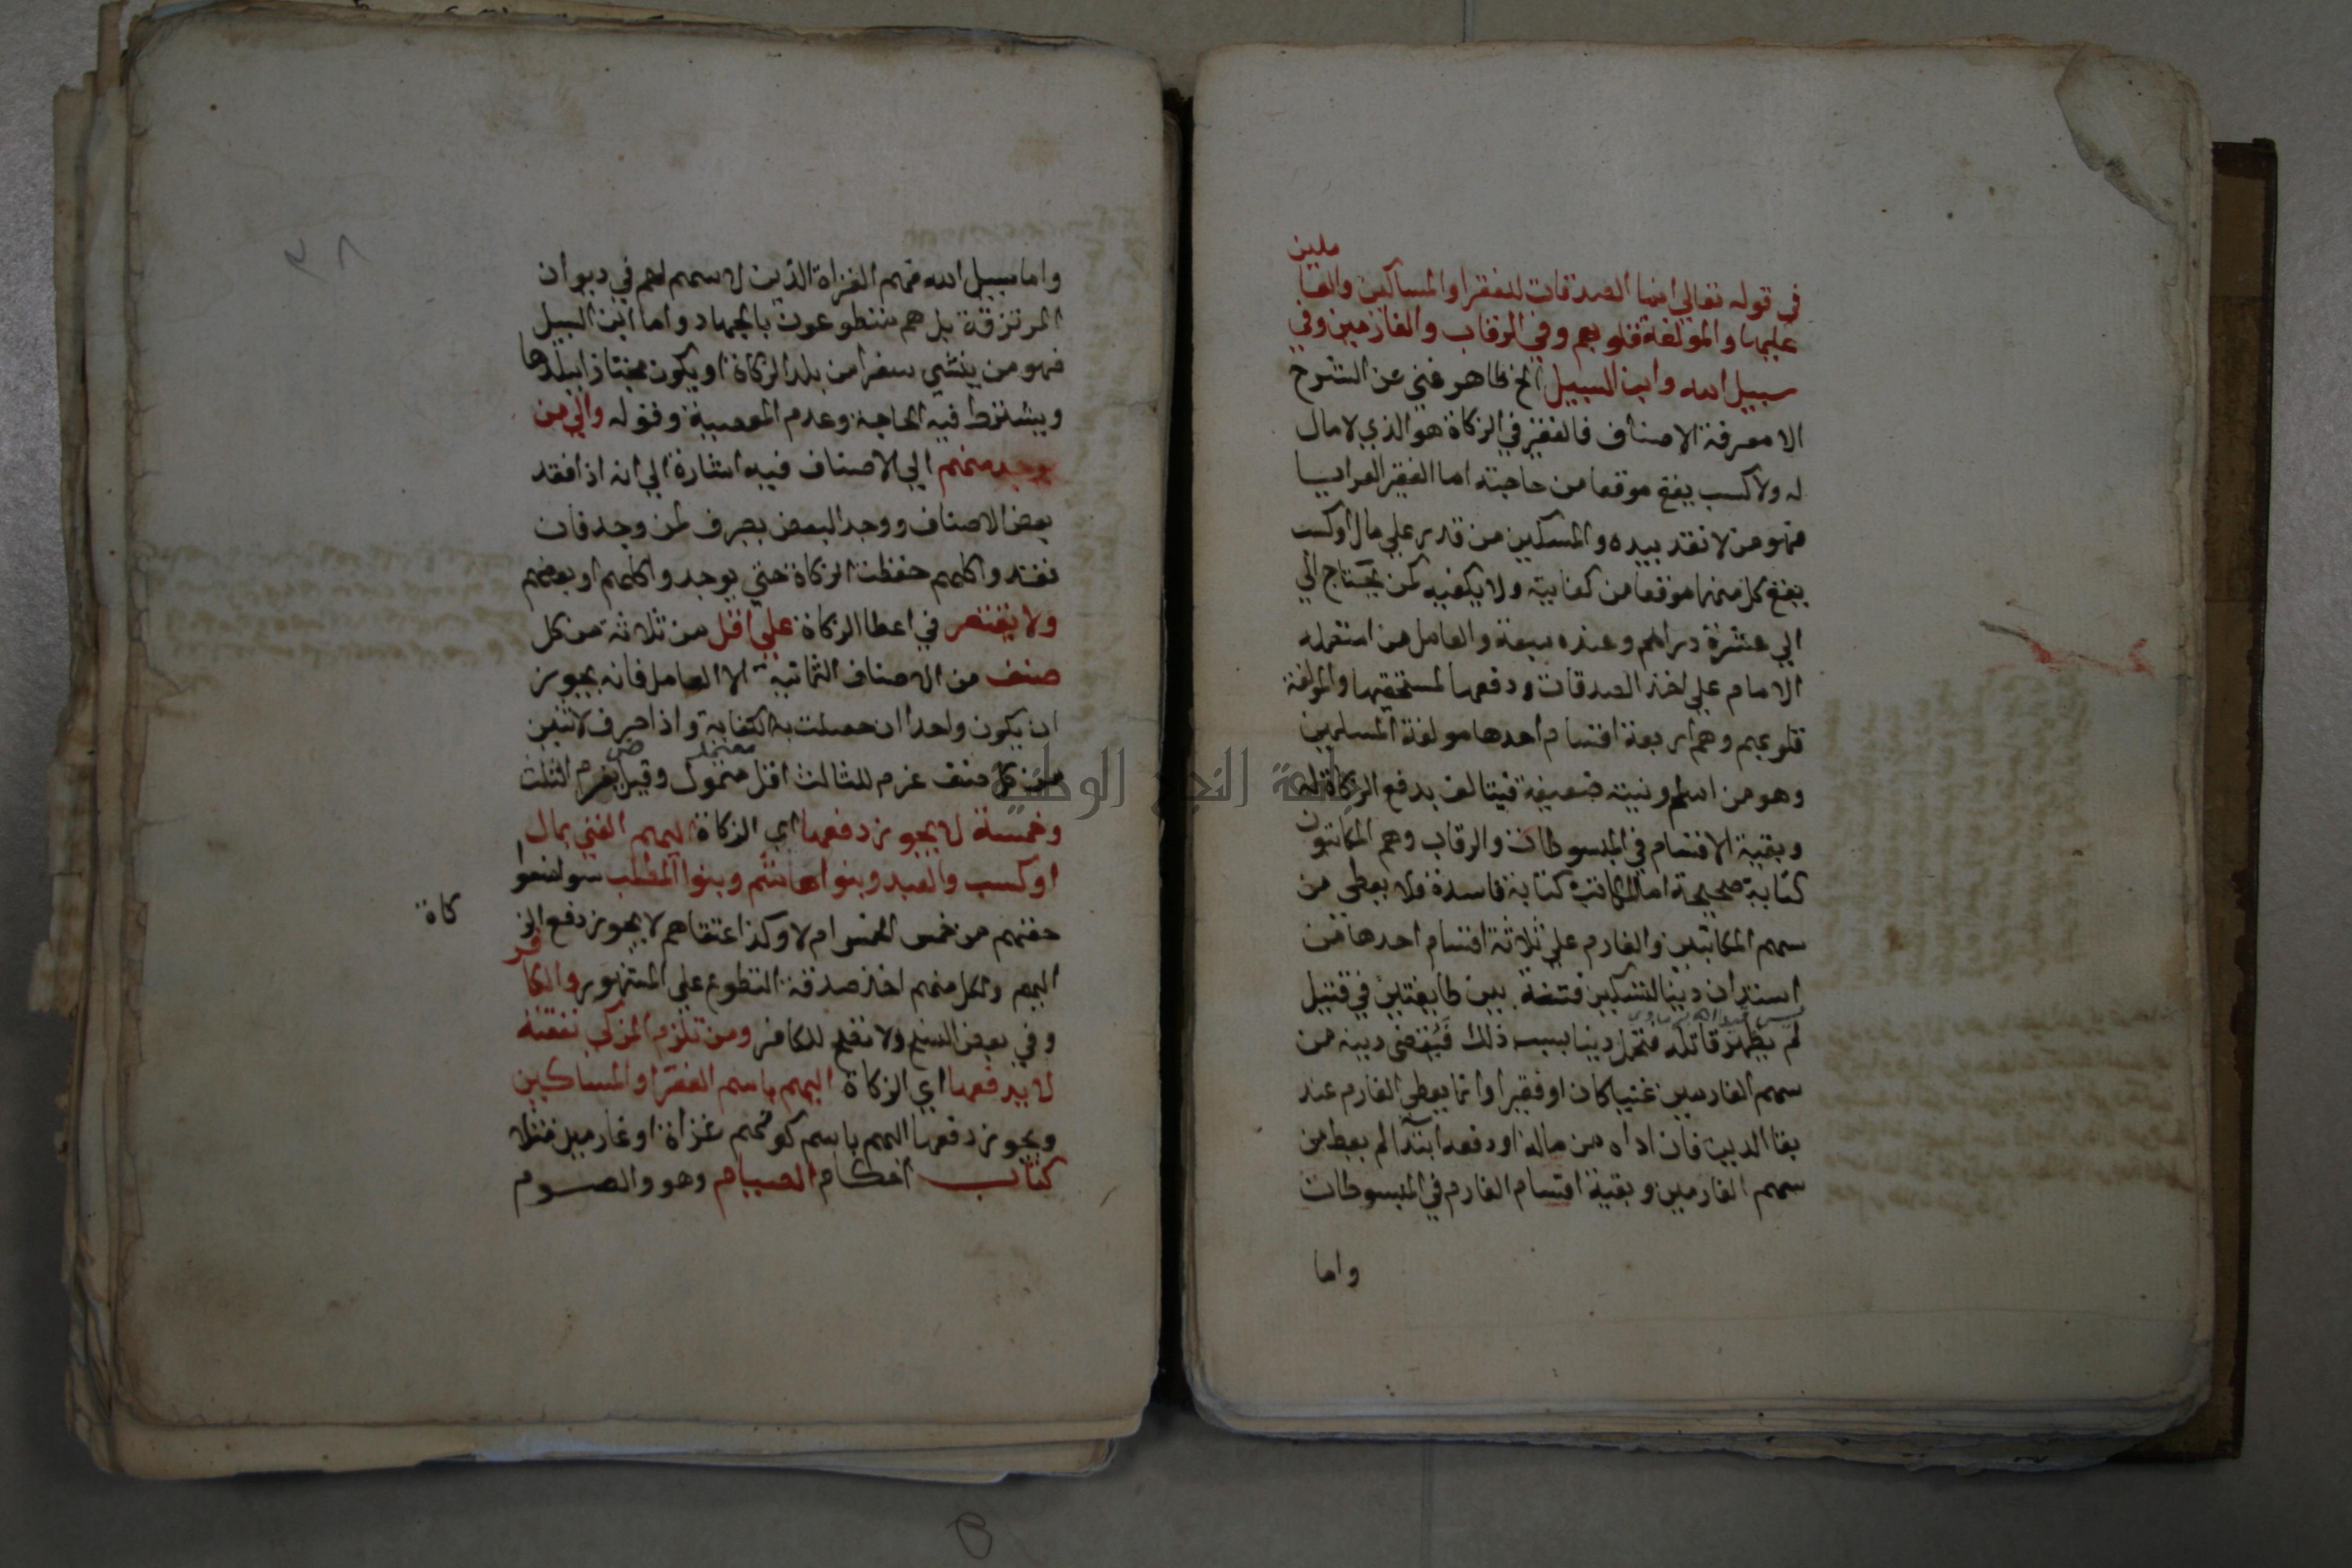 ملين
في قوله تعالي انما الصدقات للفقرا والمساكين والعا
عليها والمولفة قلوبهم وفي الرقاب والغارمين وفي
سبيل الله وابن السبيل الخ ظاهر غني عن الشرح
الا معرفة الاصناف فالفقير في الزكاة هو الذي لا مال
له ولا كسب يقع موقعا من حاجته اما الفقير العرايا
فهو من لا نقد بيده والمسكين من قدر علي مال او كسب
يقع كل منهما موقعا من كفايته ولا يكفيه كمن يحتاج الي
الي عشرة دراهم وعنده سبعة والعامل من استعمله
الامام علي اخذ الصدقات ودفعها لمستحقيها والمولفة
قلوبهم وهم اربعة اقسام احدها مولفة المسلمين
وهو من اسلم ونيته ضعيفة فيتالف بدفع الزكاة له
وبقية الاقسام في المبسوطات والرقاب وهم المكاتبون
كتابة صحيحة اما المكاتب كتابة فاسدة فلا يعطي من
سهم المكاتبين والغارم علي ثلاثة اقسام احدها من
استدان دينا لتسكين فتنة بين طايفتين في قتيل
لم يظهر قاتله فتحمل دينا بسبب ذلك فيقضي دينه من
سهم الغارمين غنيا كان او فقيرا وانما يعطي الغارم عند
بقا الدين فان اداه من ماله او دفعه ابتدا لم يعط من
سهم الغارمين وبقية اقسام الغارم في المبسوطات
واما
٣٨
واما سبيل الله فهم الغزاة الذين لا سهم لهم في ديوان
المرتزقة بل هم متطوعون بالجهاد واما ابن السبيل
فهو من ينشي سفرا من بلد الزكاة او يكون مجتازا ببلدها
ويشترط فيه الحاجة وعدم المعصية وقوله والي من
يوجد منهم الي الاصناف فيه اشارة الي انه اذا فقد
بعض الاصناف ووجد البعض يصرف لمن وجد فان
فقدوا كلهم حفظت الزكاة حتي يوجدوا كلهم او بعضهم
ولا يقتصر في اعطا الزكاة علي اقل من ثلاثة من كل
صنف من الاصناف الثمانية الا العامل فانه يجوز
ان يكون واحدا ان حصلت به الكفاية واذا صرف لاثنين
معتمد
من كل صنف غرم للثالث اقل متمول وقيل يغرم الثلث
وخمسة لا يجوز دفعها اي الزكاة اليهم الغني بمال
او كسب والعبد وبنوا هاشم وبنوا المطلب سوا منعوا
حقهم من خمس الخمس ام لا وكذا عتقاهم لا يجوز دفع الز
كاة
اليهم ولكل منهم اخذ صدقة التطوع علي المشهور والكا
فر
وفي بعض النسخ ولا تصح للكافر ومن تلزم المزكي نفقته
لا يدفعها اي الزكاة اليهم باسم الفقرا والمساكين
ويجوز دفعها اليهم باسم كونهم غزاة او غارمين مثلا
كتاب احكام الصيام وهو والصوم
جامعة النجاح الوطنية